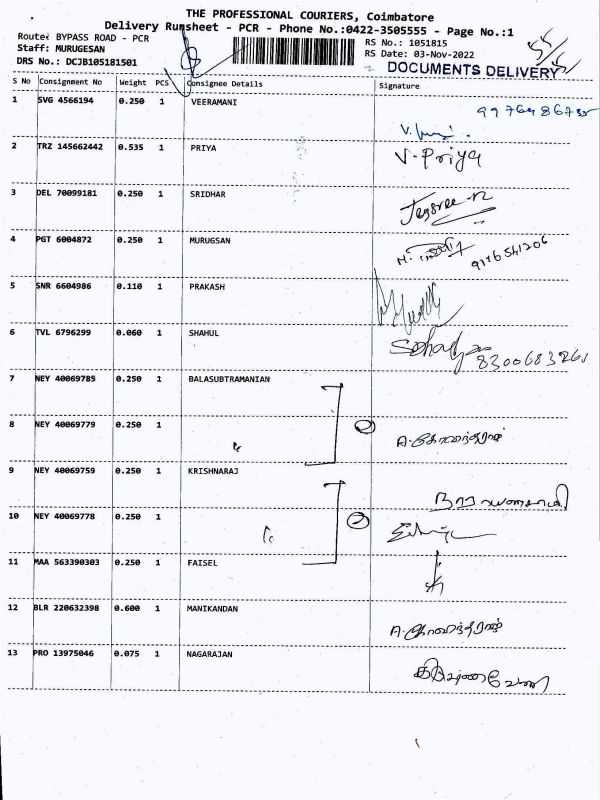 THE PROFESSIONAL COURIERS, Coimbatore
Delivery Runsheet - PCR - Phone No.:0422-3505555 - Page No.:1
Route: BYPASS ROAD - PCR
RS No.: 1051815
Staff: MURUGESAN
RS Date: 03-Nov-2022
DRS No.: DCJB105181501
DOCUMENTS DELIVERY
S No Consignment No Weight PCS Consignee Details Signature
1 SVG 4566194 0.250 1 VEERAMANI
2 TRZ 145662442 0.535 1 PRIYA V. Priya
3 DEL 70099181 0.250 1 SRIDHAR
4 PGT 6004872 0.250 1 MURUGSAN 9176541206
5 SNR 6604986 0.110 1 PRAKASH
6 TVL 6796299 0.060 1 SHAHUL
8300683261
7 NEY 40069785 0.250 1 BALASUBTRAMANIAN
8 NEY 40069779 0.250 1 " 2
9 NEY 40069759 0.250 1 KRISHNARAJ
10 NEY 40069778 0.250 1 " 2
11 MAA 563390303 0.250 1 FAISEL
12 BLR 220632398 0.600 1 MANIKANDAN
13 PRO 13975046 0.075 1 NAGARAJAN